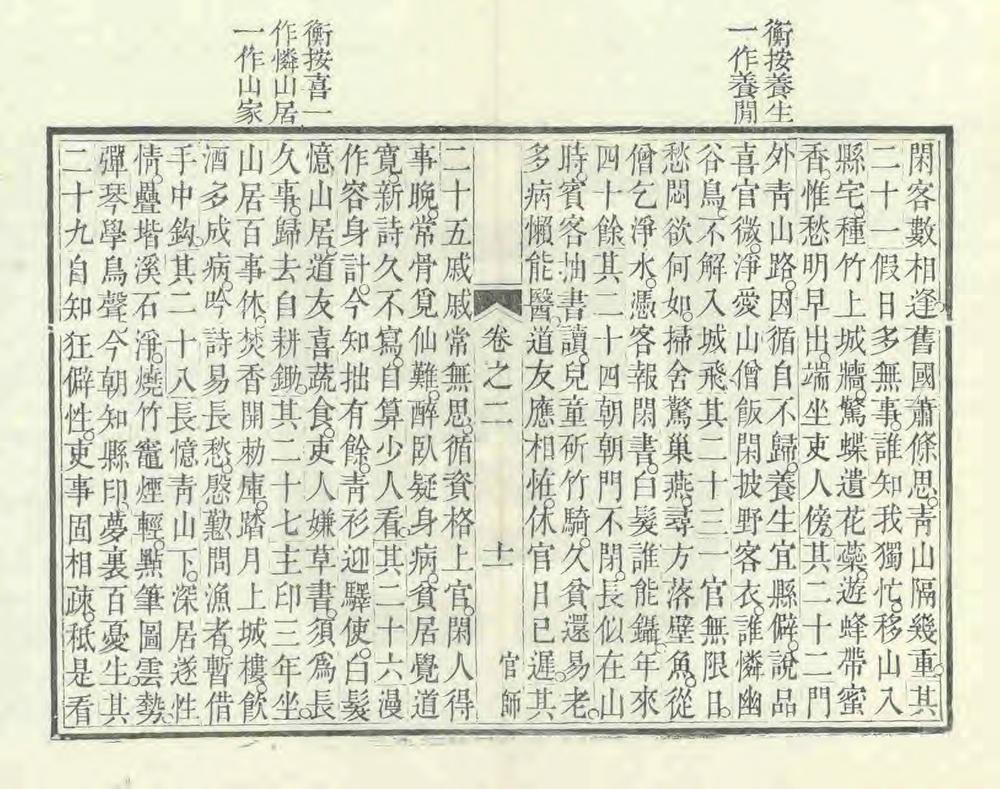 衡按養生
一作養閒
閑客數相逢。舊國蕭條思。青山隔幾重。其
二十一假日多無事。誰知我獨忙。移山入
縣宅。種竹上城牆。驚蝶遺花蘂。遊蜂帶蜜
香。惟愁明早出。端坐吏人傍。其二十二門
外青山路。因循自不歸。養生宜縣僻。說品
喜官微。淨愛山僧飯。閑披野客衣。誰憐幽
谷鳥。不解入城飛。其二十三一官無限日。
愁悶欲何如。掃舍驚巢燕。尋方落壁魚。從
僧乞淨水。憑客報閑書。白髮誰能鑷。年來
四十餘。其二十四朝朝門不閉。長似在山
時。賓客抽書讀。兒童斫竹騎。久貧還易老。
多病懶能醫。道友應相怪。休官日已遲。其
卷之二
十一
官師
衡按喜一
作憐山居
一作山家
二十五戚戚常無思。循資格上官。閑人得
事晚。常骨覓仙難。醉臥疑身病。貧居覺道
寬。新詩久不寫。自算少人看。其二十六漫
作容身計。今知拙有餘。青衫迎驛使。白髮
憶山居。道友喜蔬食。吏人嫌草書。須爲長
久事。歸去自耕鋤。其二十七主印三年坐。
山居百事休。焚香開勅庫。踏月上城樓。飲
酒多成病。吟詩易長愁。慇懃問漁者。暫借
手中鈎。其二十八長憶青山下。深居遂性
情。疊堦溪石淨。燒竹竈煙輕。點筆圖雲勢。
彈琴學鳥聲。今朝知縣印。夢裏百憂生。其
二十九自知狂僻性。吏事固相疎。秪是看